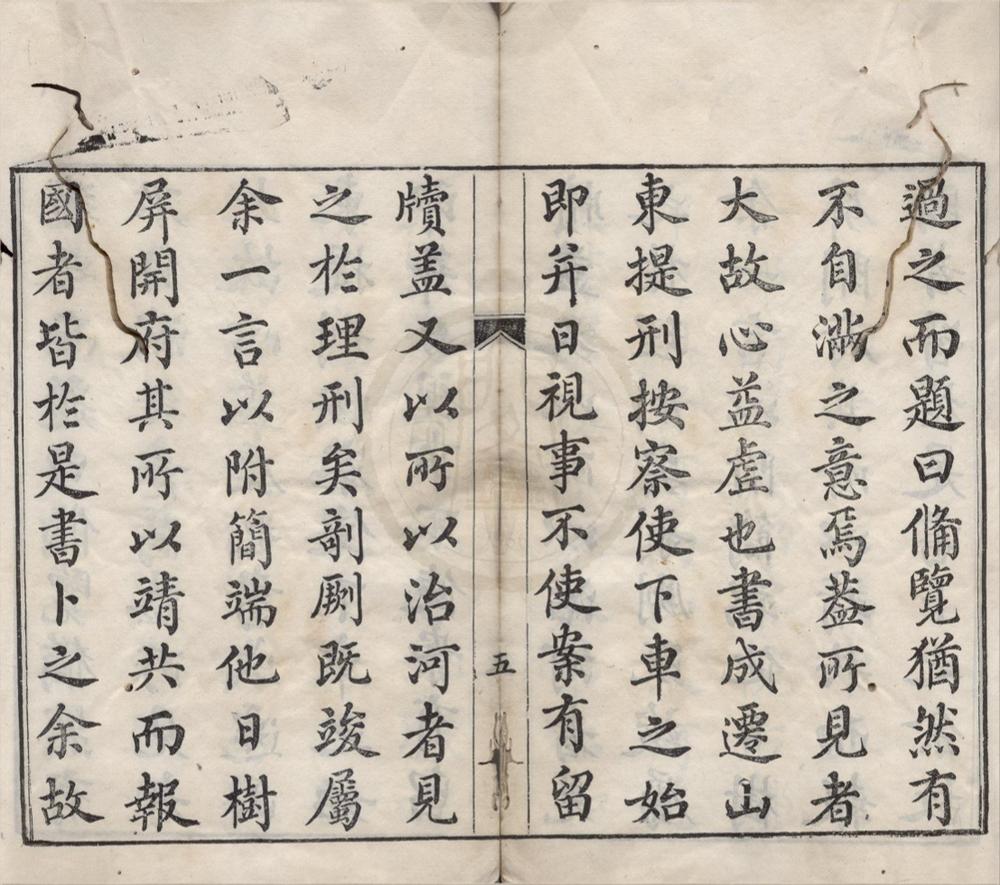 過之而題曰俻覽猶然有
不自滿之意焉葢所見者
大故心益虛也書成遷山
東提刑按察使下車之始
即并日視事不使案有留
五
牘盖又以所以治河者見
之於理刑矣剞劂既竣屬
余一言以附簡端他日樹
屏開府其所以靖共而報
國者皆於是書卜之余故